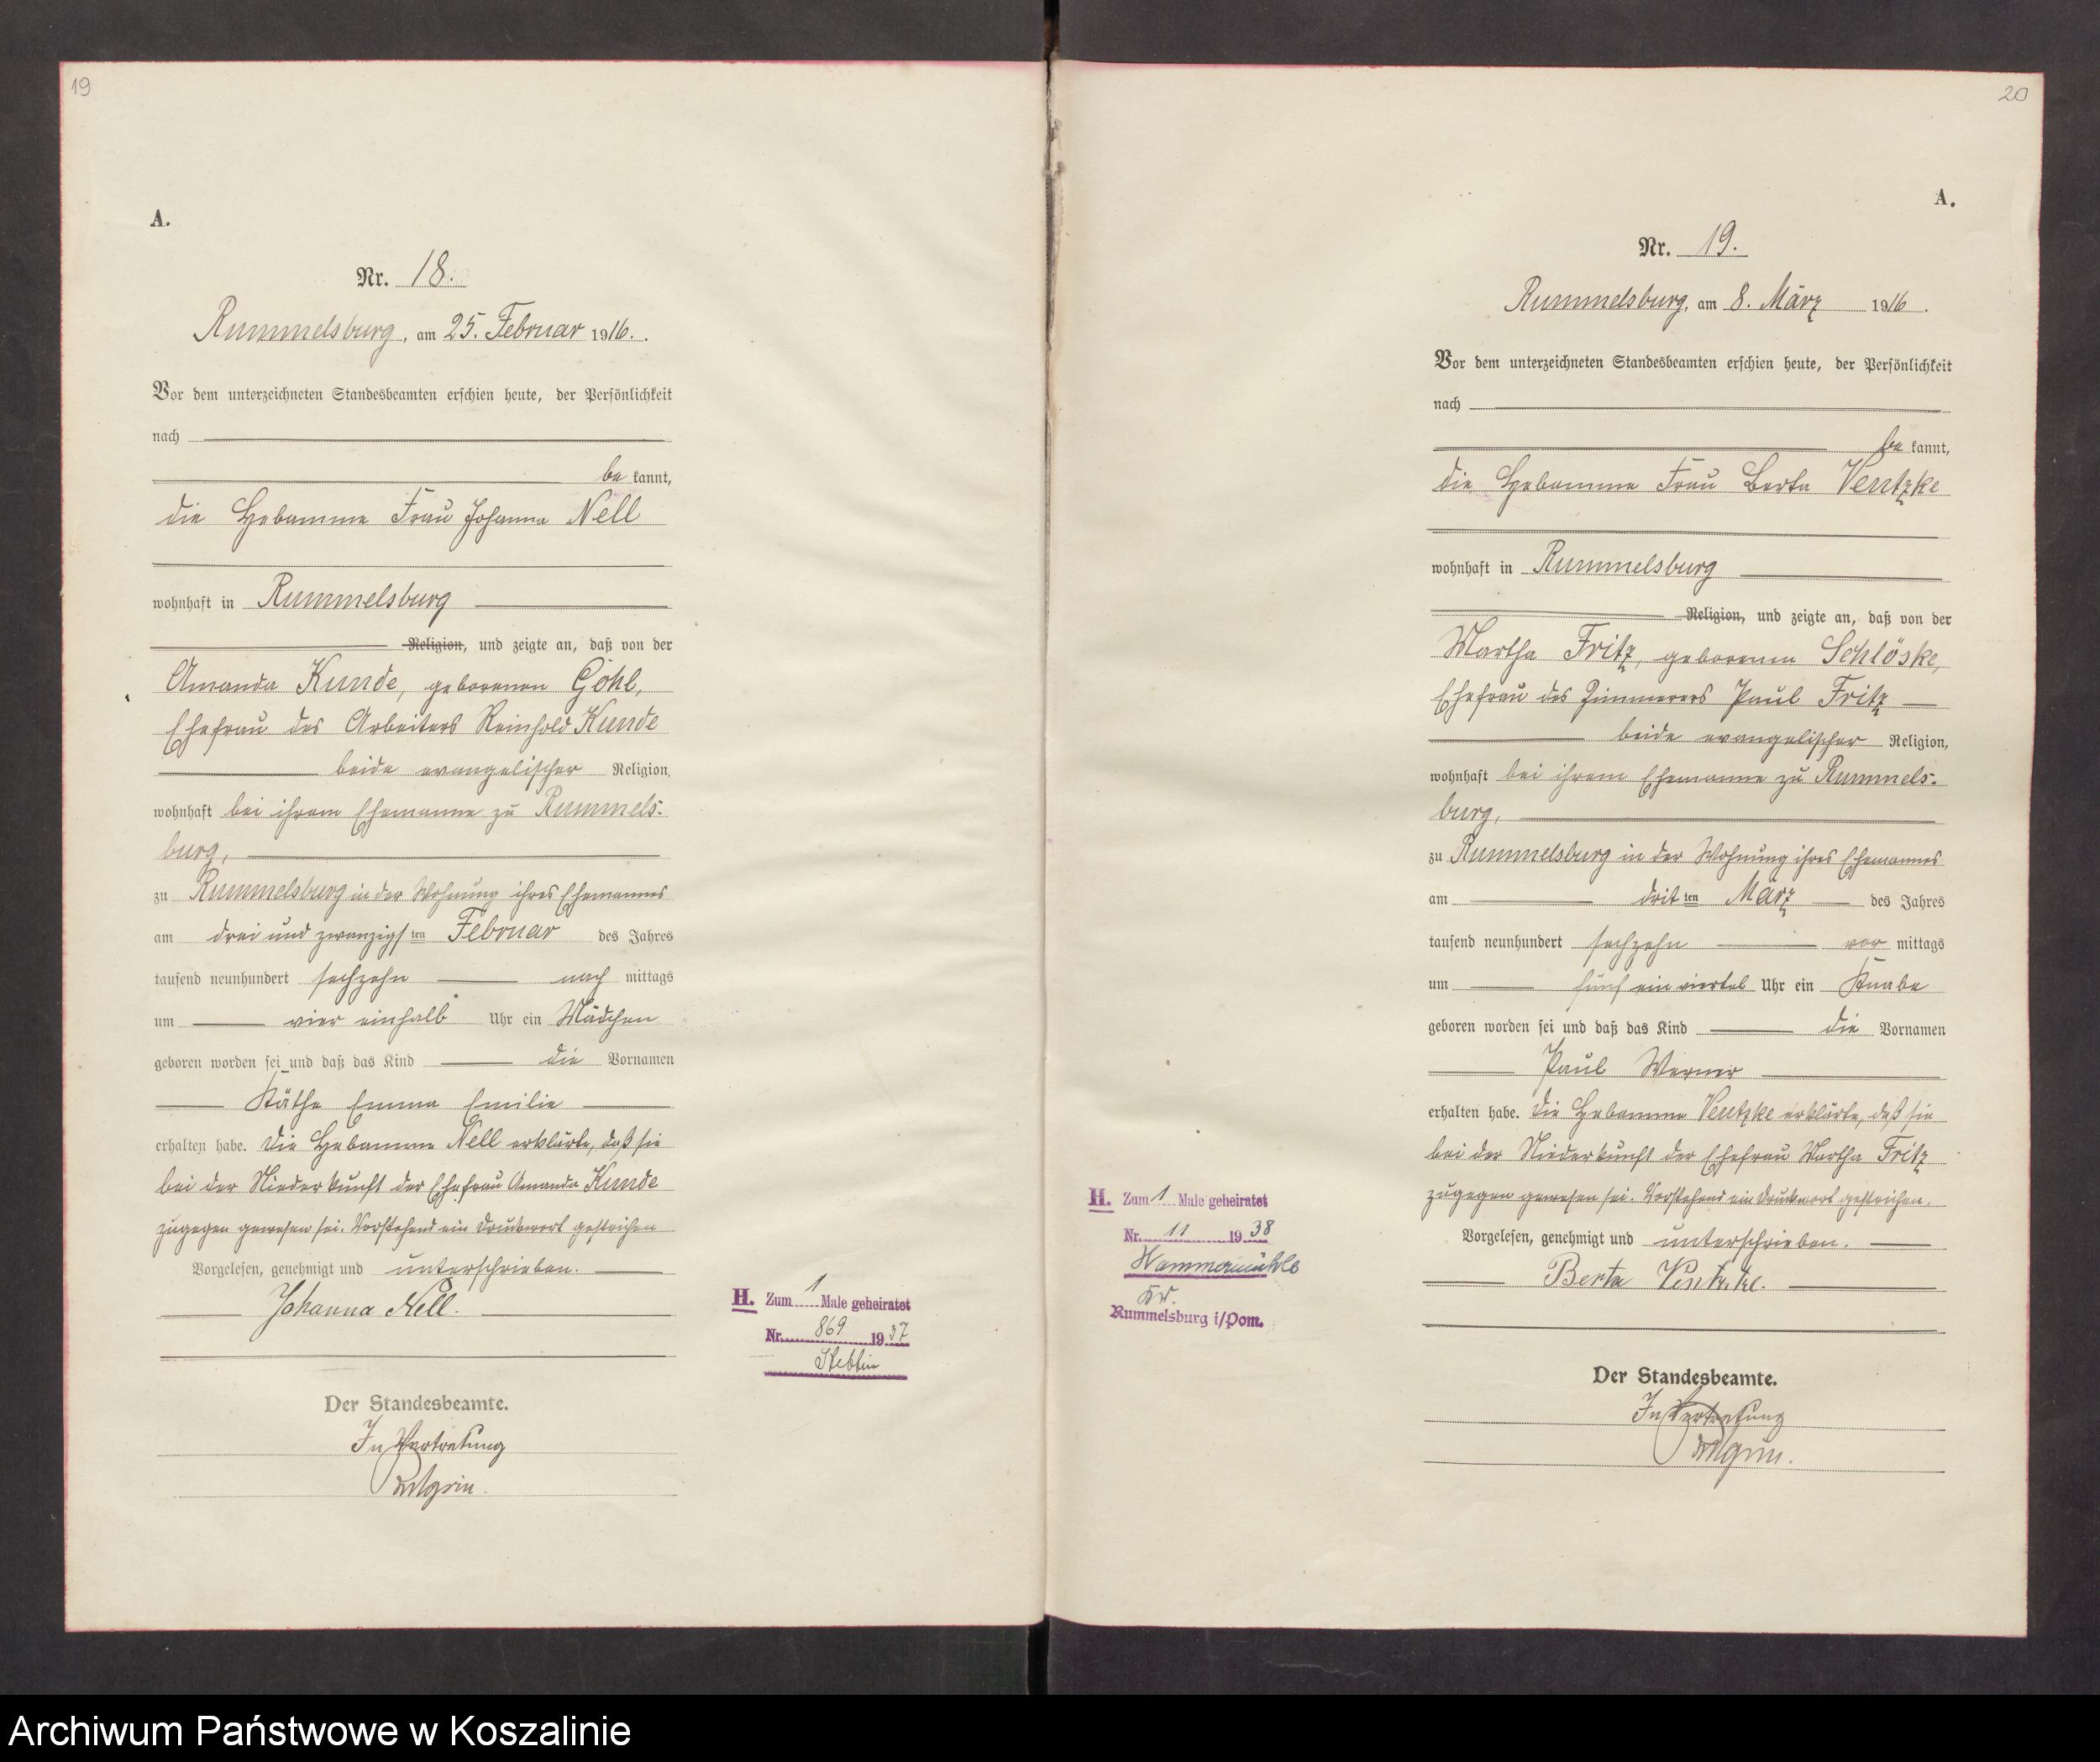 19
A.
Nr. 18.
Rummelsburg, am 25. Februar 1916.
Vor dem unterzeichneten Standesbeamten erschien heute, der Persönlichkeit
nach
be kannt,
die Hebamme Frau Johanna Nell
wohnhaft in Rummelsburg
Religion, und zeigte an, daß von der
Amanda Kunde, geborenen Göhl,
Ehefrau des Arbeiters Reinhold Kunde
beide evangelischer Religion,
wohnhaft bei ihrem Ehemanne zu Rummels-
burg,
zu Rummelsburg in der Wohnung ihres Ehemannes
am drei und zwanzigsten Februar des Jahres
tausend neunhundert sechzehn nach mittags
um vier einhalb Uhr ein Mädchen
geboren worden sei und daß das Kind die Vornamen
Käthe Emma Emilie
erhalten habe. Die Hebamme Nell erklärte, daß sie
bei der Niederkunft der Ehefrau Amanda Kunde
zugegen gewesen sei. Vorstehend ein Druckwort gestrichen
Vorgelesen, genehmigt und unterschrieben.
Johanna Nell.
Der Standesbeamte.
In Vertretung
H. Zum 1 Male geheiratet
Nr. 869 1937
Stettin
20
A.
Nr. 19.
Rummelsburg, am 8. März 1916.
Vor dem unterzeichneten Standesbeamten erschien heute, der Persönlichkeit
nach
be kannt,
die Hebamme Frau Berta Ventzke
wohnhaft in Rummelsburg
Religion, und zeigte an, daß von der
Martha Fritz, geborenen Schlöske,
Ehefrau des Zimmerers Paul Fritz
beide evangelischer Religion,
wohnhaft bei ihrem Ehemanne zu Rummels-
burg,
zu Rummelsburg in der Wohnung ihres Ehemannes
am dritten März des Jahres
tausend neunhundert sechzehn vor mittags
um fünf ein viertel Uhr ein Knabe
geboren worden sei und daß das Kind die Vornamen
Paul Werner
erhalten habe. Die Hebamme Ventzke erklärte, daß sie
bei der Niederkunft der Ehefrau Martha Fritz
zugegen gewesen sei. Vorstehend ein Druckwort gestrichen.
Vorgelesen, genehmigt und unterschrieben.
Berta Ventzke.
Der Standesbeamte.
In Vertretung
H. Zum 1 Male geheiratet
Nr. 11 1938
Hammermühle
Kr.
Rummelsburg i/Pom.
Archiwum Państwowe w Koszalinie